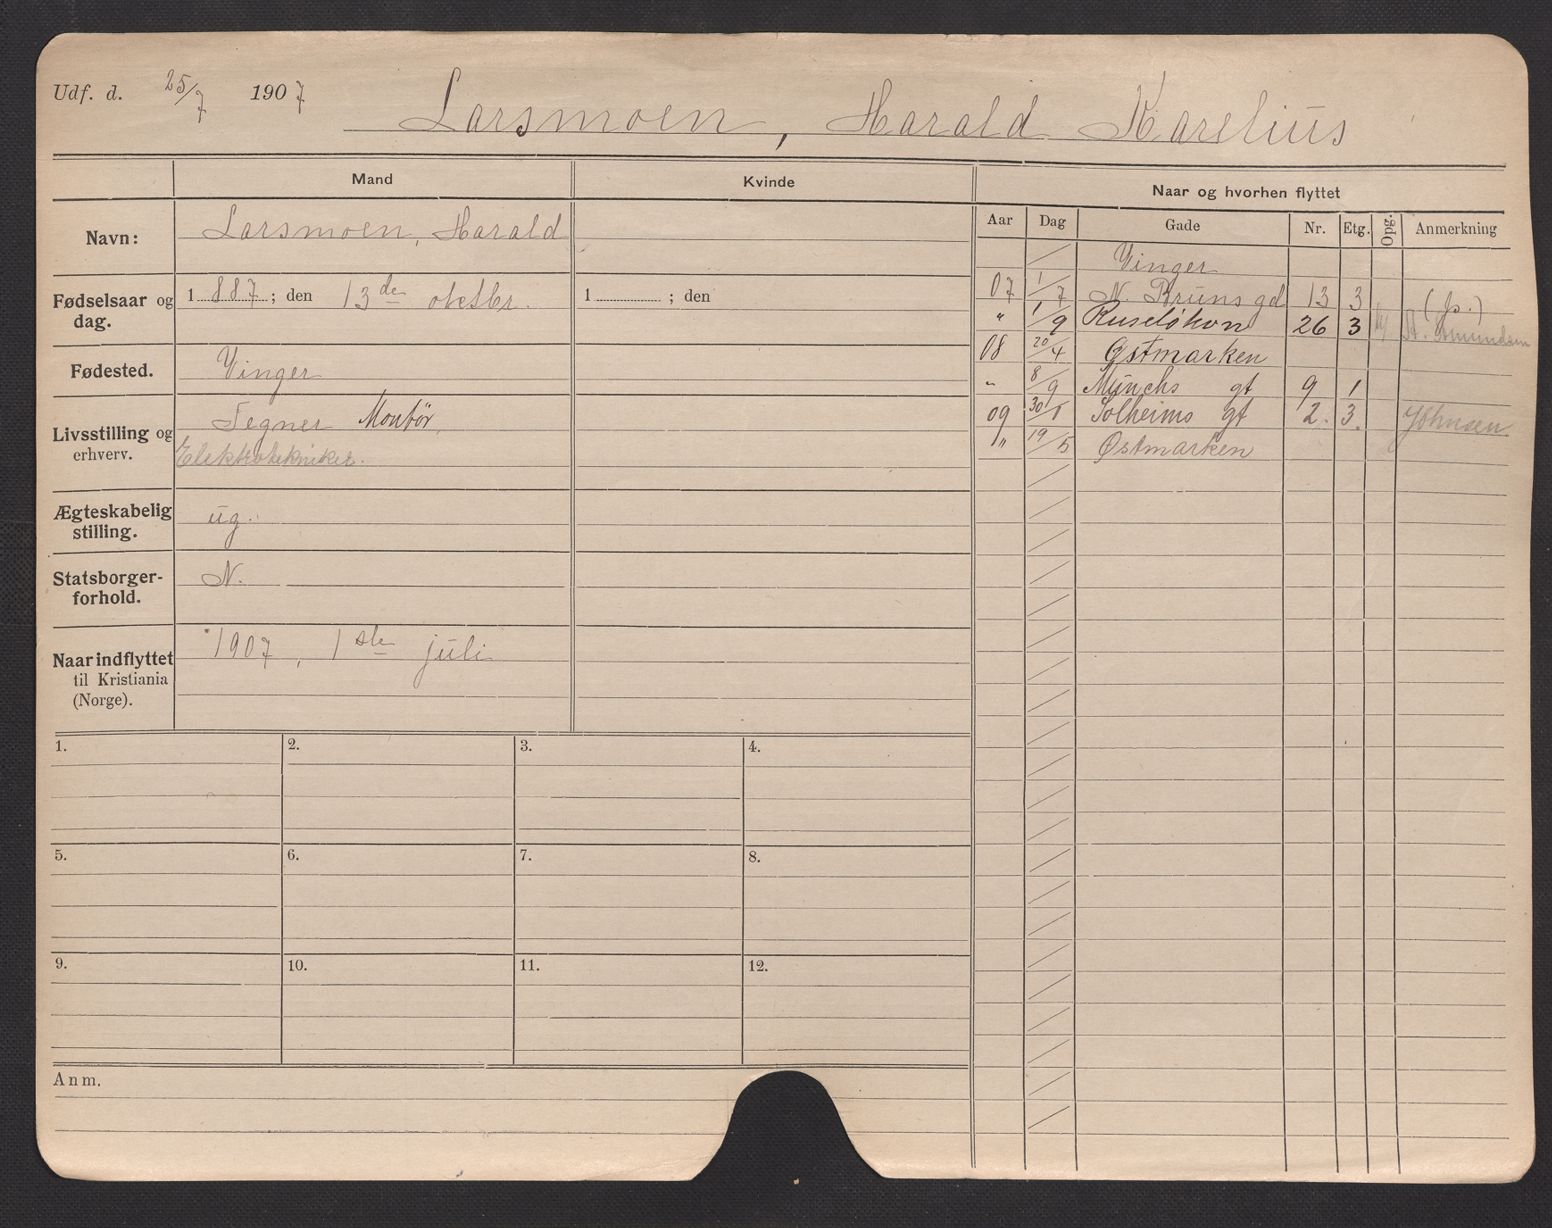 Udf. d. 25/7 1907
Larsmoen, Harald Karelius
Mand
Kvinde
Naar og hvorhen flyttet
Navn: Larsmoen, Harald
Fødselsaar og dag. 1887; den 13de oktbr. 1 ; den
Fødested. Vinger
Livsstilling og erhverv. Tegner Montør,
Elektrotekniker.
Ægteskabelig stilling. ug.
Statsborgerforhold. N.
Naar indflyttet til Kristiania (Norge). 1907, 1ste juli
Aar Dag Gade Nr. Etg. Opg. Anmerkning
Vinger
07 1/7 N. Bruns gd 13 3
" 1/9 Ruseløkvn 26 3
08 20/4 Østmarken
" 8/9 Münchs gt 9 1
09 30/1 Solheims gt 2. 3. Johnsen
" 19/5 Østmarken
1. 2. 3. 4.
5. 6. 7. 8.
9. 10. 11. 12.
Anm.